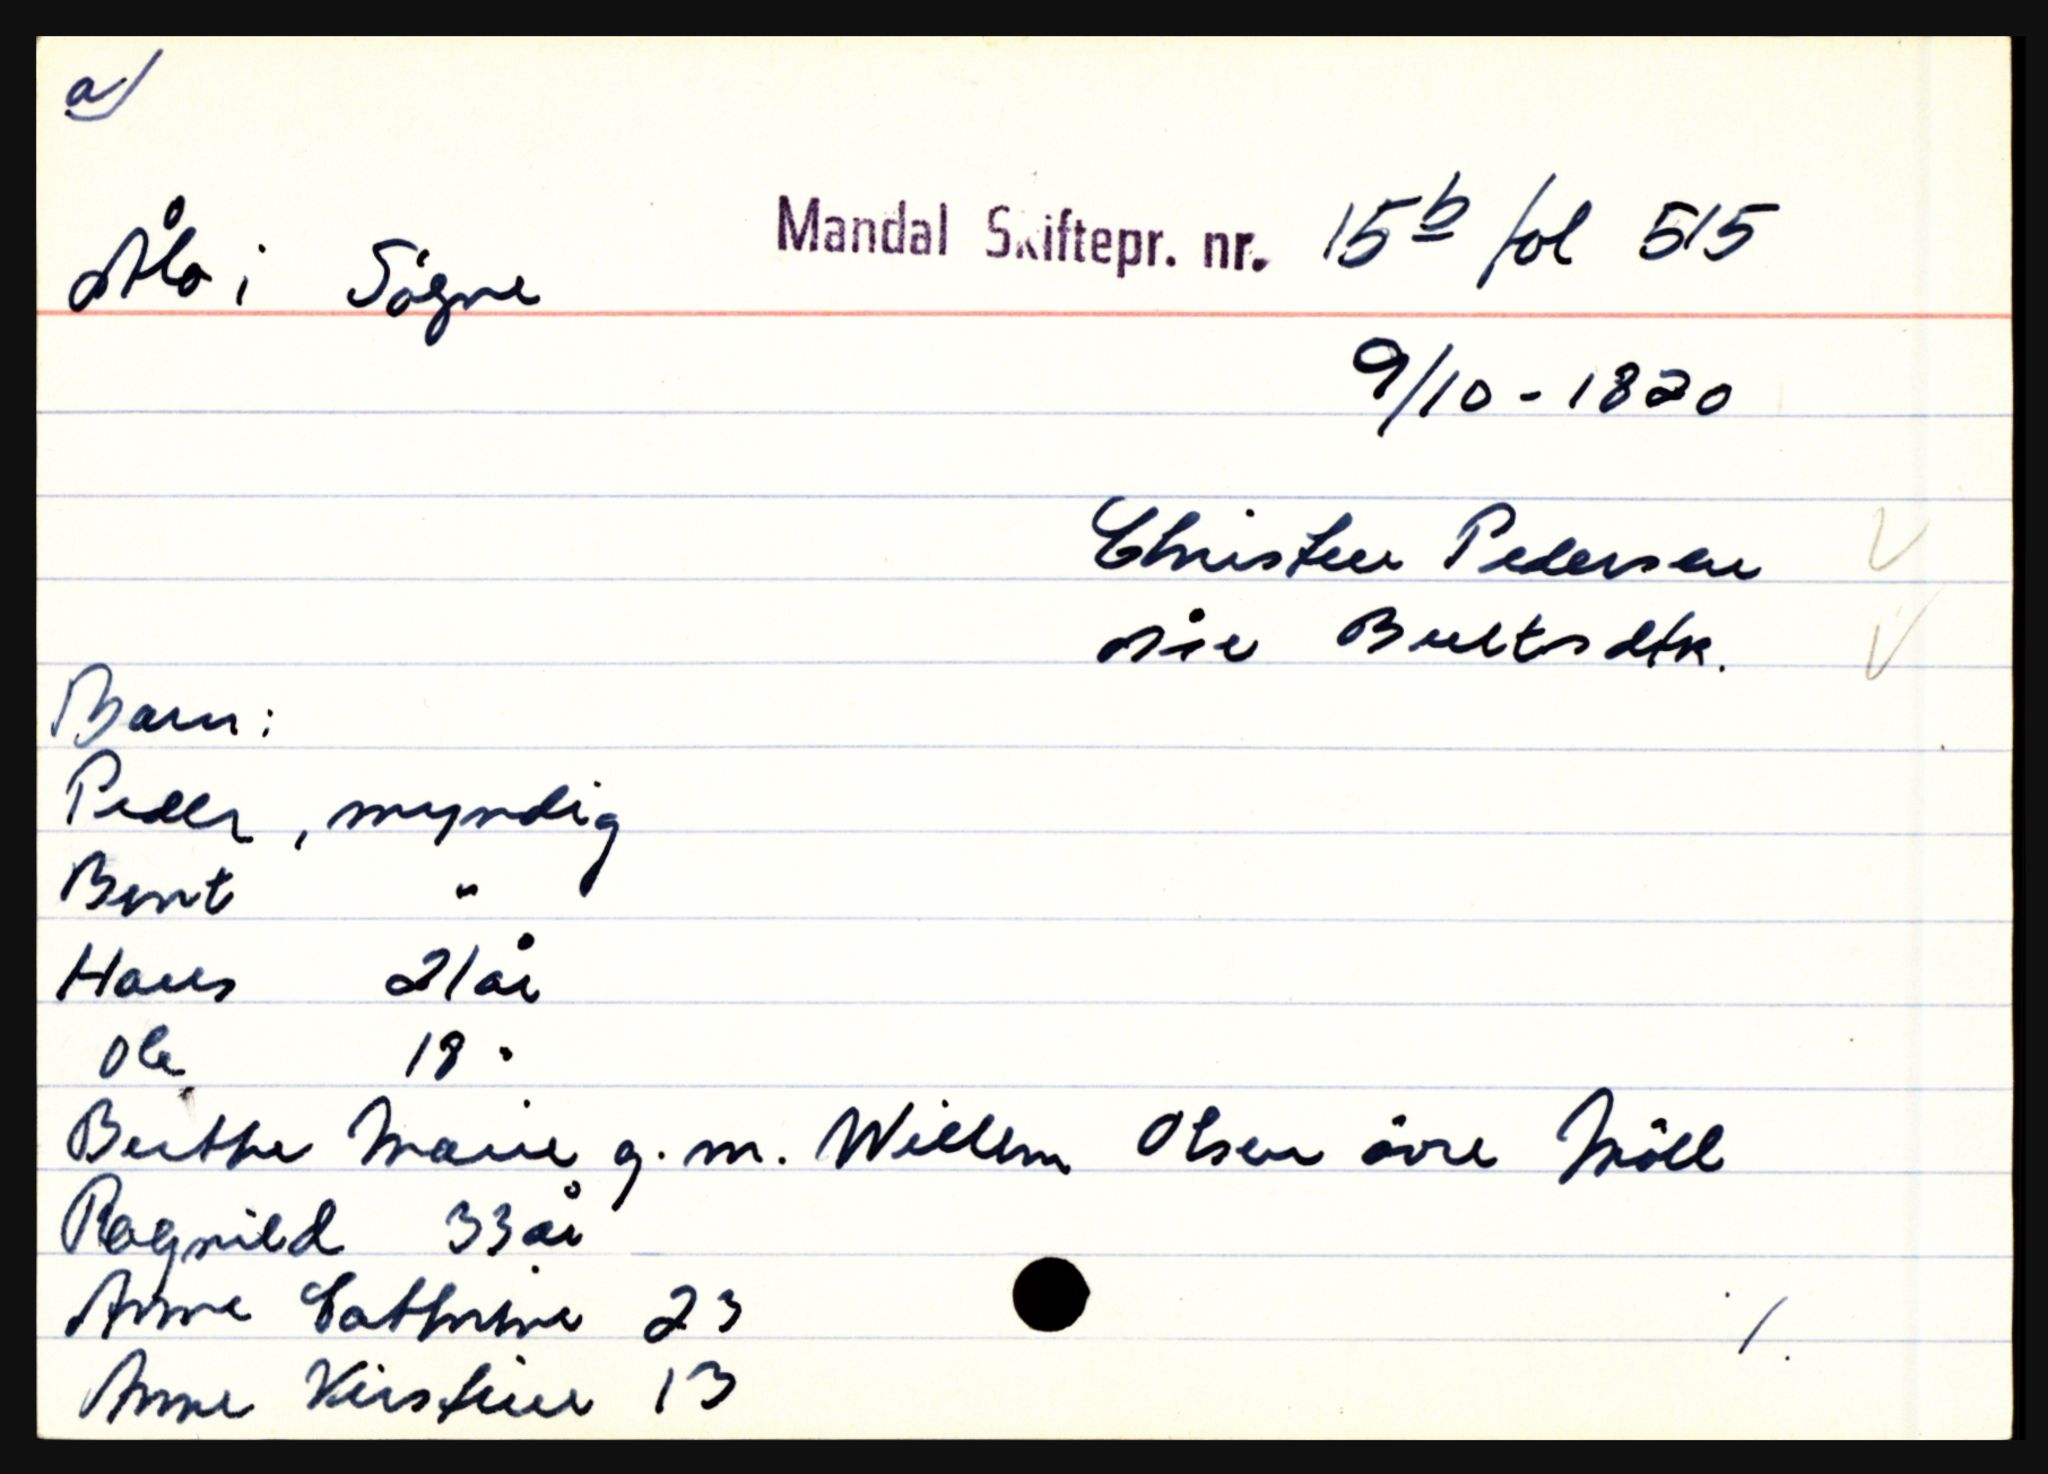 a/
Ålo i Sögne Mandal Skiftepr. nr. 15b fol 515
9/10-1820
Christen Pedersen
Åse Beeltsdtr.
Barn:
Peder, myndig
Bent "
Hans 21 år
Ole 18 "
Berthe Marie g.m. Willem Olsen övre Möll
Ragnild 33 år
Anne Cathrine 23
Anne Kirstine 13